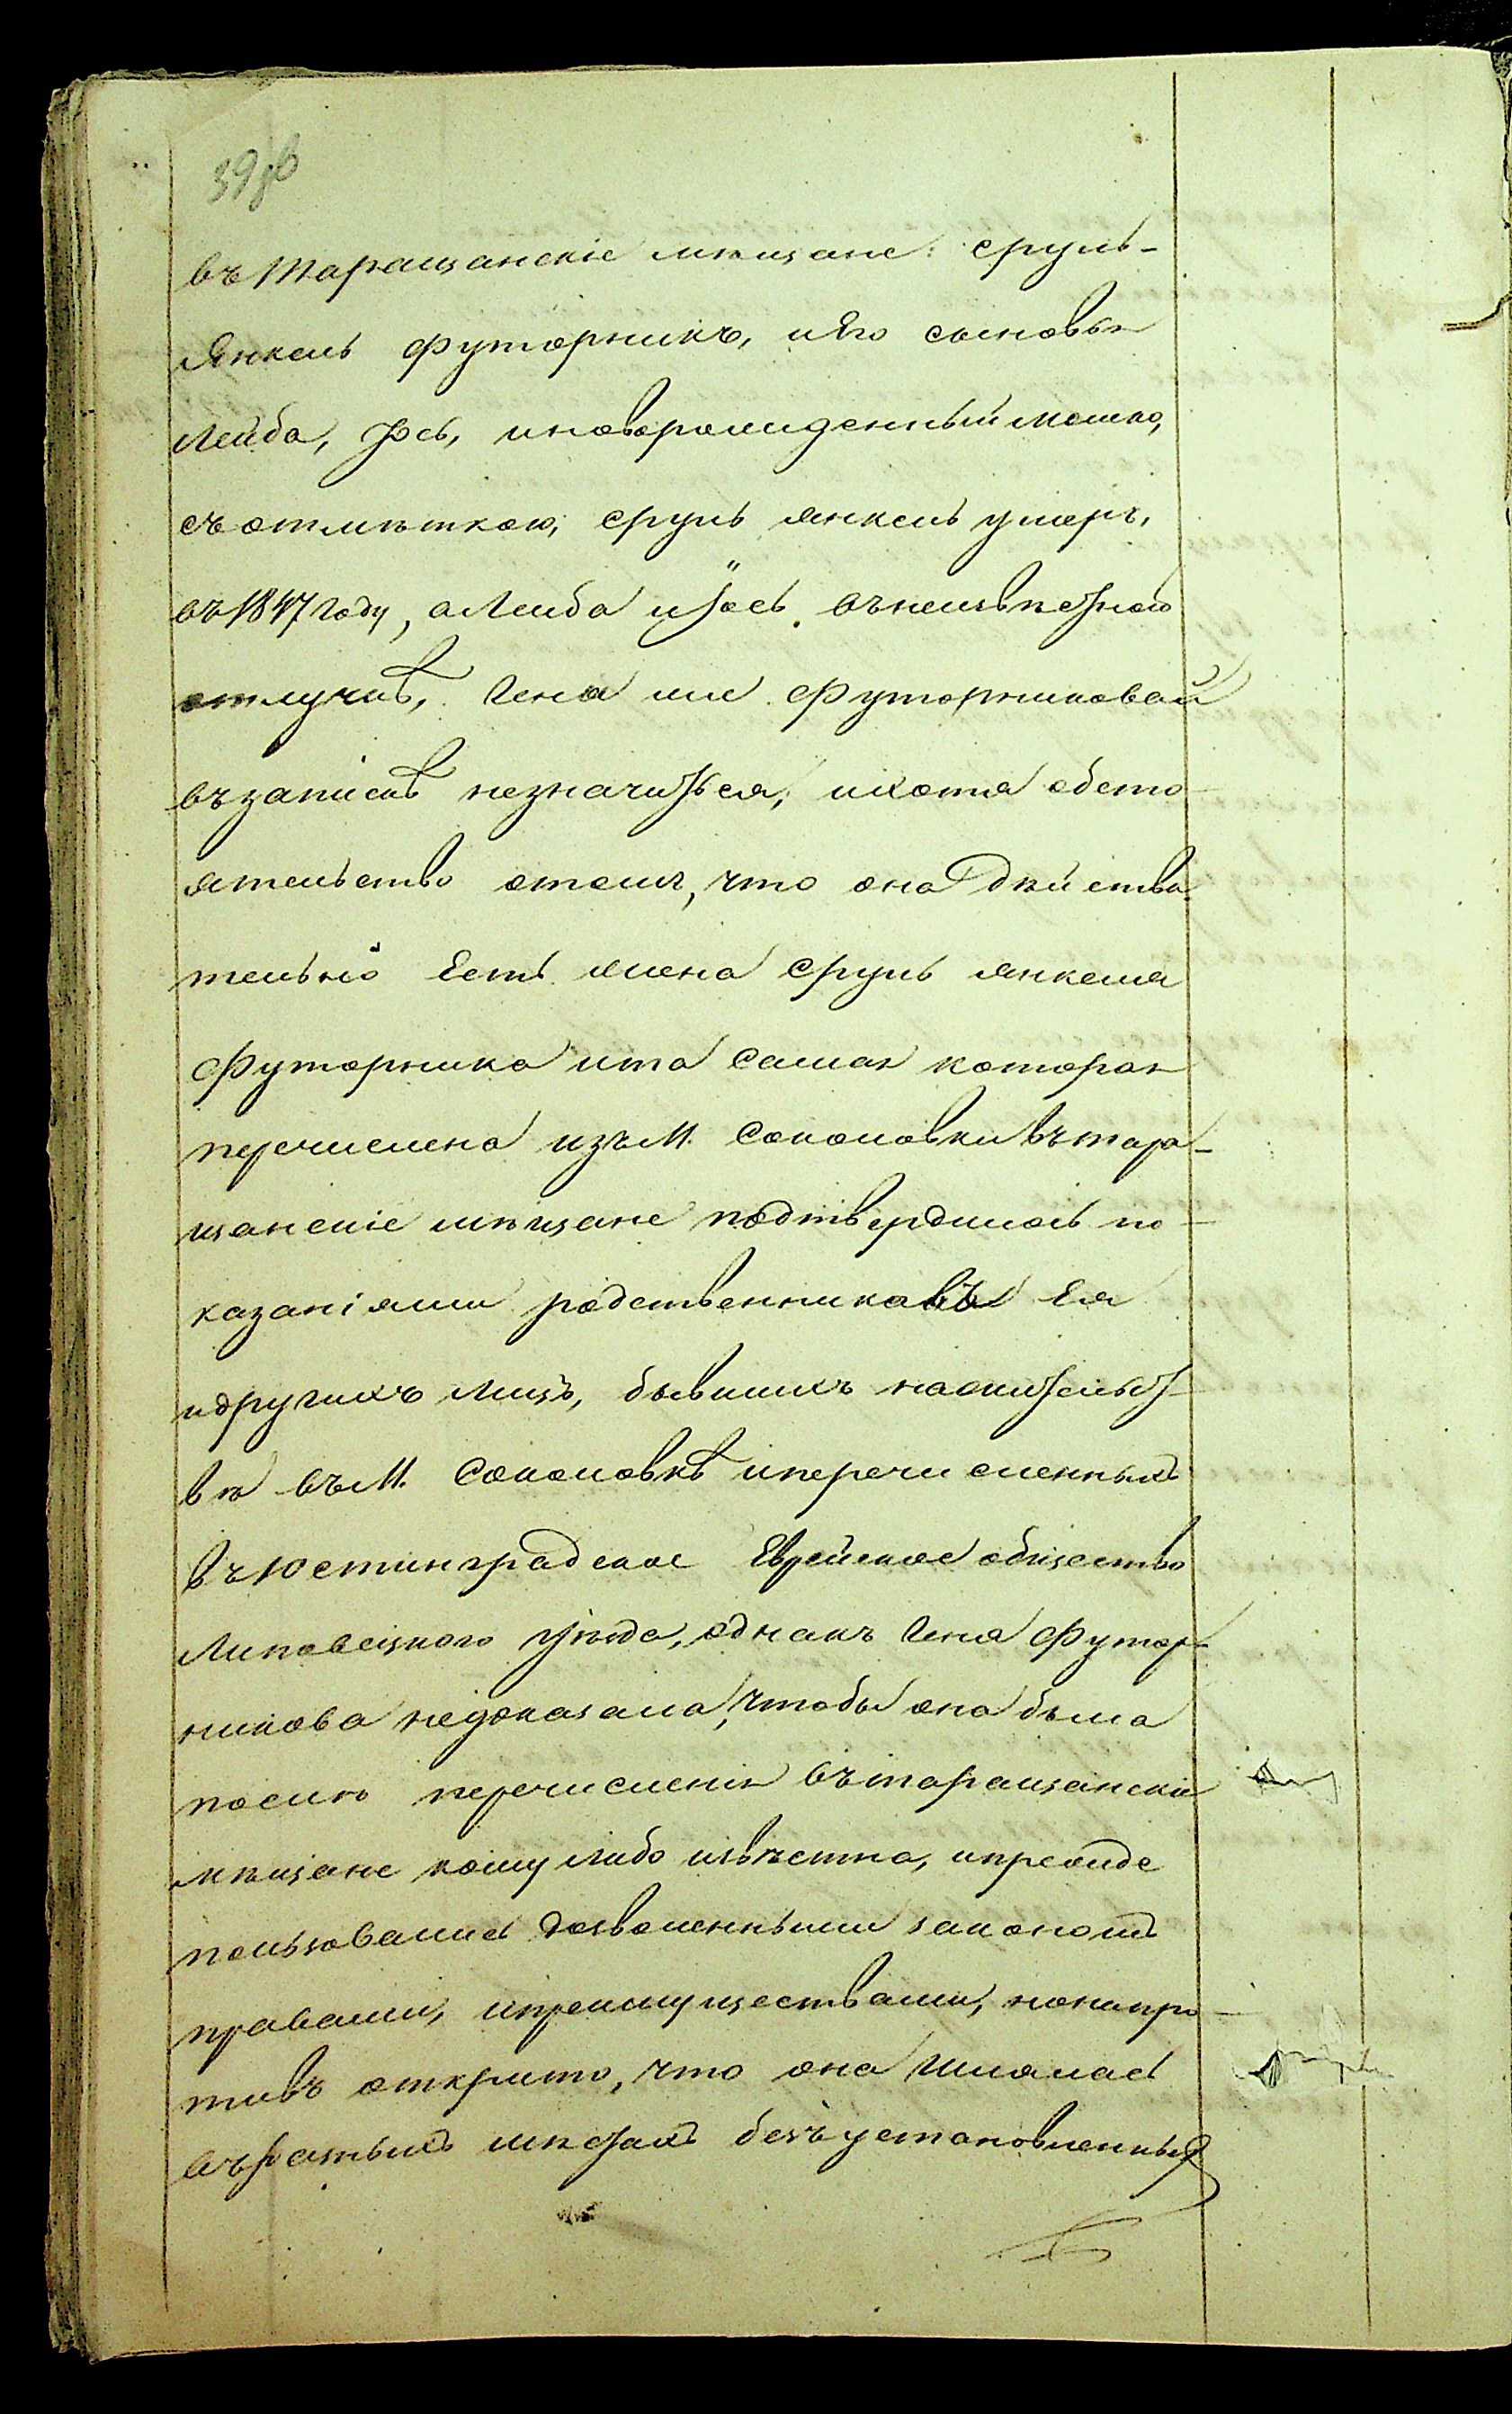 39об
въ Таращанскіе мѣщане: Сруль-
Янкель Футорникъ, и Его сыновья
Лейба, Іось, и новорожденный Мошко,
съ отмѣткою, Сруль Янкель умеръ,
въ 1847 году, а Лейба и Іось въ неизвѣстной
отлучкѣ, Ченя же Футорниковой
въ запискѣ незначиться; и хотя обсто-
ятельство отомъ, что она дѣйстви-
тельно Есть жена Сруль Янкеля
Футорника и та самая которая
перечислена изъ М. Соколовки въ Тара-
щанскіе мѣщане подтвердилось по-
казаніями родственниковъ Ея
и другихъ лицъ, бывшихъ на жительст-
вѣ въ М. Соколовкѣ и перечисленныхъ
въ Юстинградское Еврейское общество
Липовецкого уѣзда, однакъ Ченя Футор-
никова недоказала, чтобы она была
послѣ перечисленія въ Таращанскіе
мѣщане кому либо извѣстна, и прежде
пользовалась дозволенными закономъ
правами, и преимуществами, но напро-
тивъ открыто, что она шлялась
въ разныхъ мѣстахъ безъ установленныхъ